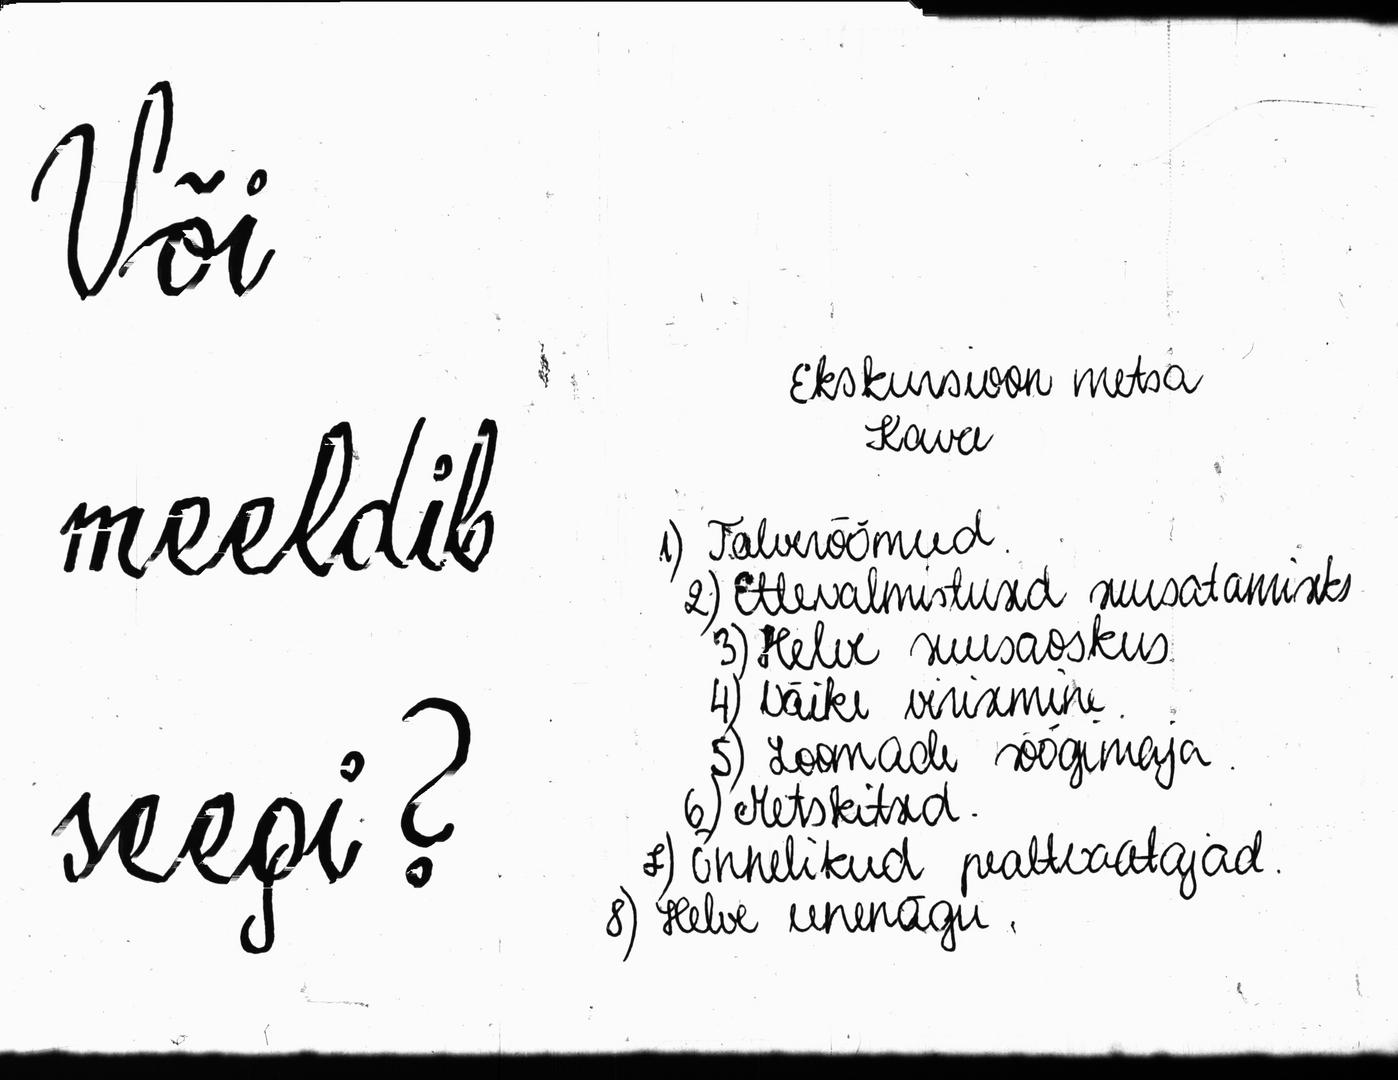 Või
meeldib
seegi?
Ekskursioon metsa
Kava
1) Talverõõmud.
2) Ettevalmistused suusatamiseks
3) Helve suusaoskus
4) Väike virisemine.
5) Loomade söögimaja.
6) Metskitsed.
7) Õnnelikud pealtvaatajad.
8) Helve unenägu.